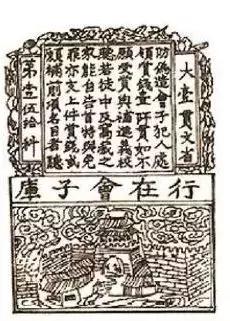 大壹貫文省
偽造會子犯人處
賞錢壹阡貫如不
願受賞與補進義校
若徒中及窩藏之
家能自告首特與免
罪亦支上件賞錢或
願補前項名目者聽
第壹伍拾料
行在會子庫